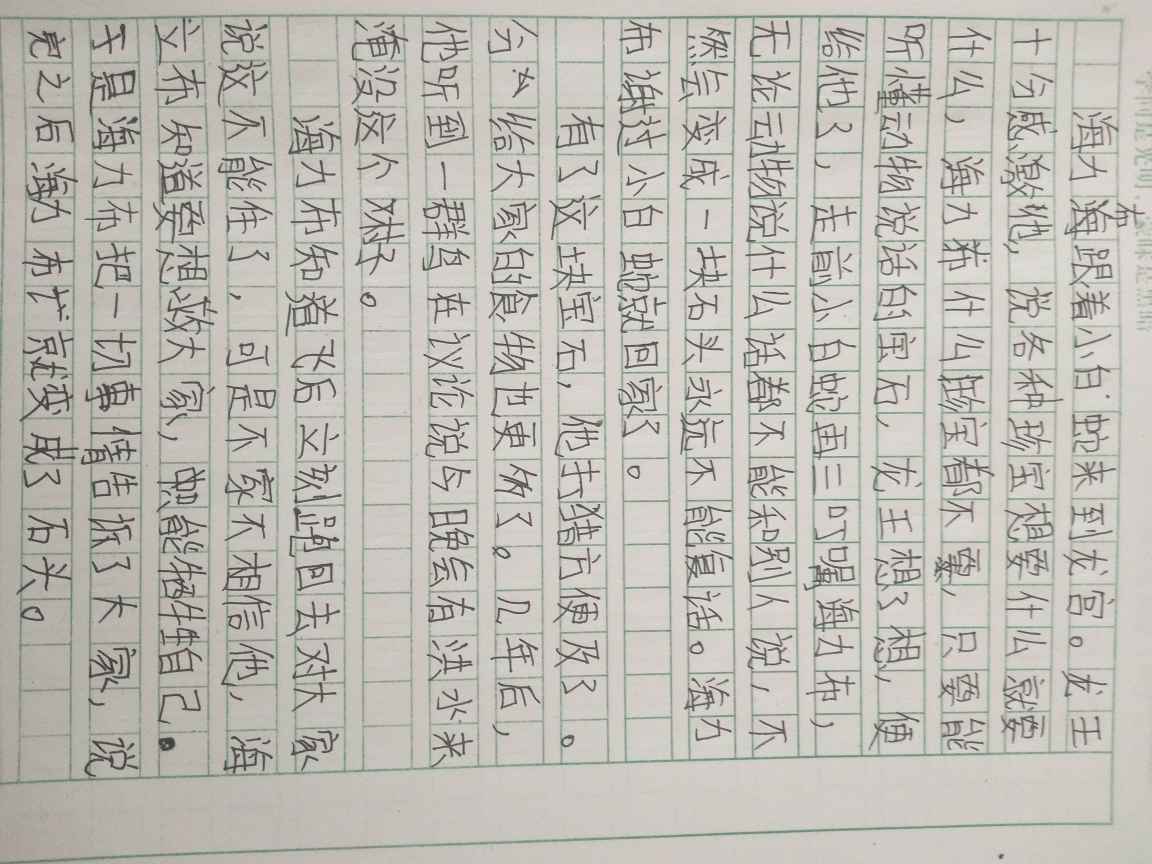 海力布跟着小白蛇来到龙宫。龙王
十分感激他，说各种珍宝想要什么就要
什么，海力布什么珍宝都不要，只要能
听懂动物说话的宝石，龙王想了想，便
给他了，走前小白蛇再三叮嘱海力布，
无论动物说什么话都不能和别人说，不
然会变成一块石头永远不能复话。海力
布谢过小白蛇就回家了。
有了这块宝石，他打猎方便及了。
分给大家的食物也更多了。几年后，
他听到一群鸟在议论说今晚会有洪水来
淹没这个村子。
海力布知道飞后立刻跑回去对大家
说这不能住了，可是不家不相信他，海
立布知道要想救大家，只能牺牲自己。
于是海力布把一切事情告诉了大家，说
完之后海力布就变成了石头。